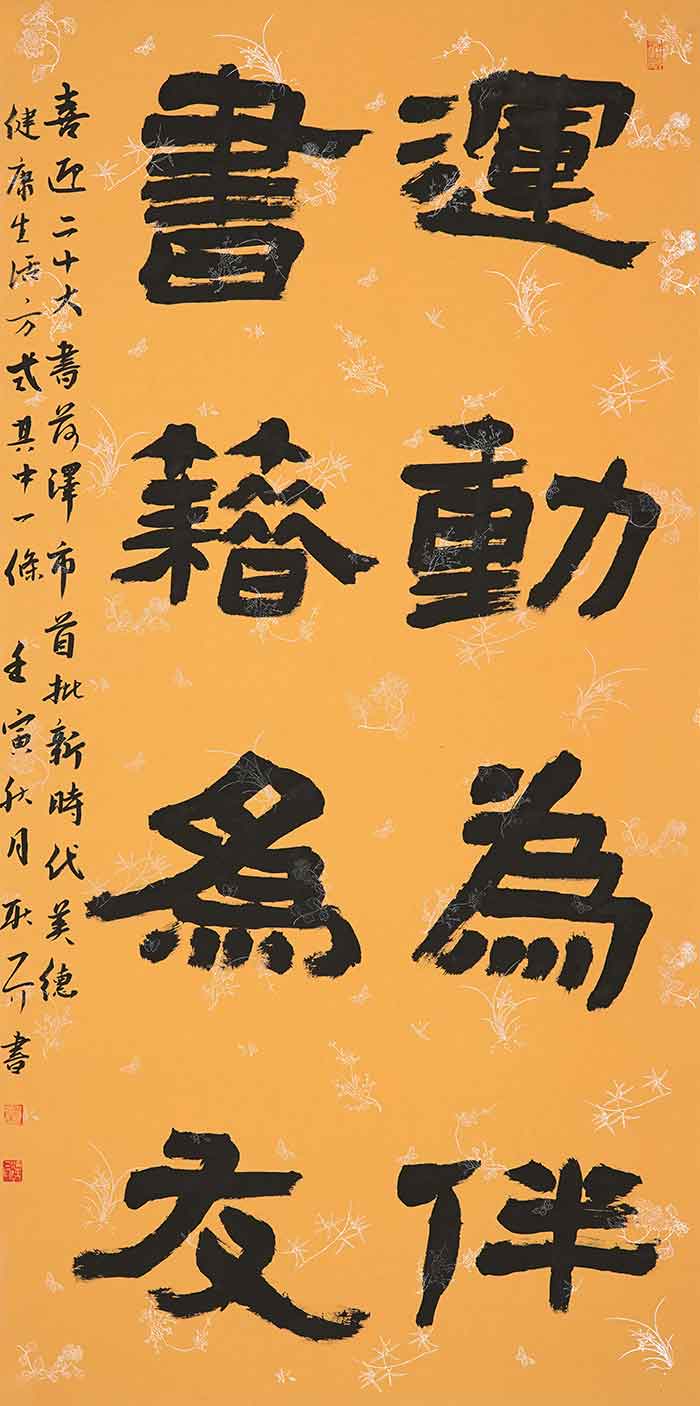 運動為伴
書籍為友
喜迎二十大書菏澤市首批新時代美德
健康生活方式其中一條 壬寅秋月 耿 書